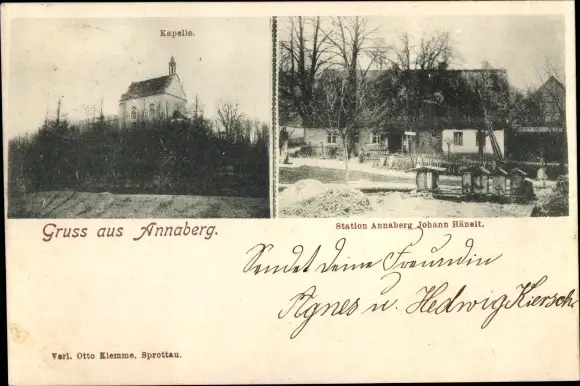 Kapelle.
Gruss aus Annaberg.
Station Annaberg Johann Hänelt.
Sendet Deine Freundin
Agnes u. Hedwig Kiersch.
Verl. Otto Klemme, Sprottau.